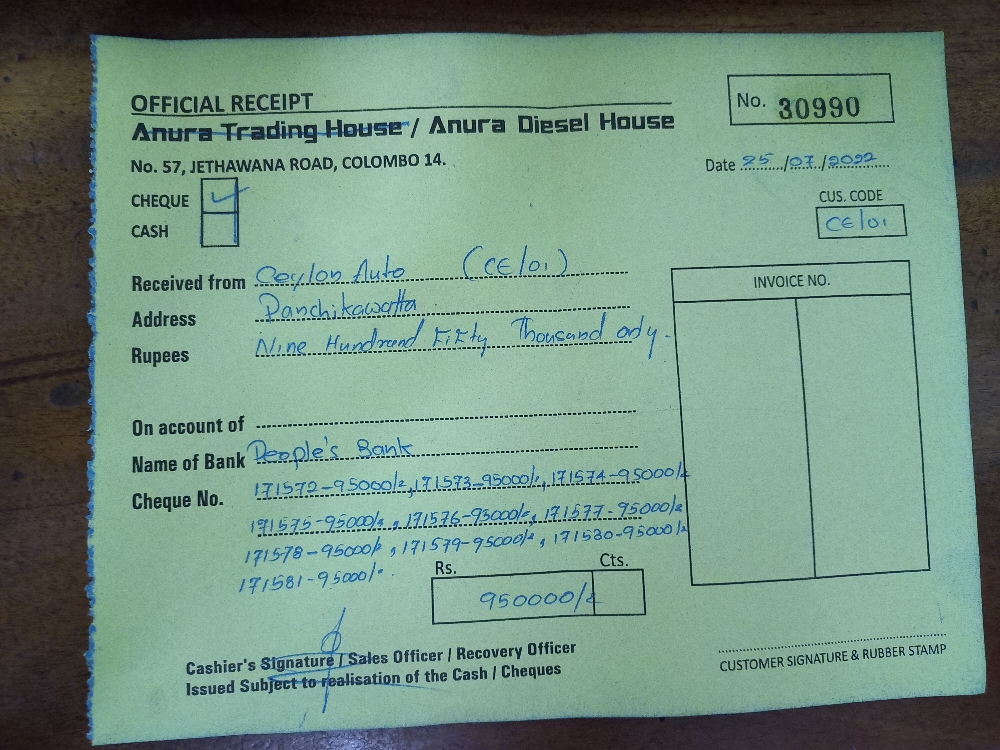 OFFICIAL RECEIPT
No. 30990
Anura Trading House / Anura Diesel House
No. 57, JETHAWANA ROAD, COLOMBO 14.
Date 25/07/2022
CHEQUE ✓
CASH
CUS. CODE
CE/01
Received from Ceylon Auto (CE/01)
INVOICE NO.
Address Panchikawatta
Rupees Nine Hundrand Fifty Thousand only.
On account of
Name of Bank People's Bank
Cheque No. 171572-95000/=, 171573-95000/=, 171574-95000/=
171575-95000/=, 171576-95000/=, 171577-95000/=
171578-95000/=, 171579-95000/=, 171580-95000/=
171581-95000/=.
Rs. Cts.
950000/=
Cashier's Signature / Sales Officer / Recovery Officer
Issued Subject to realisation of the Cash / Cheques
CUSTOMER SIGNATURE & RUBBER STAMP